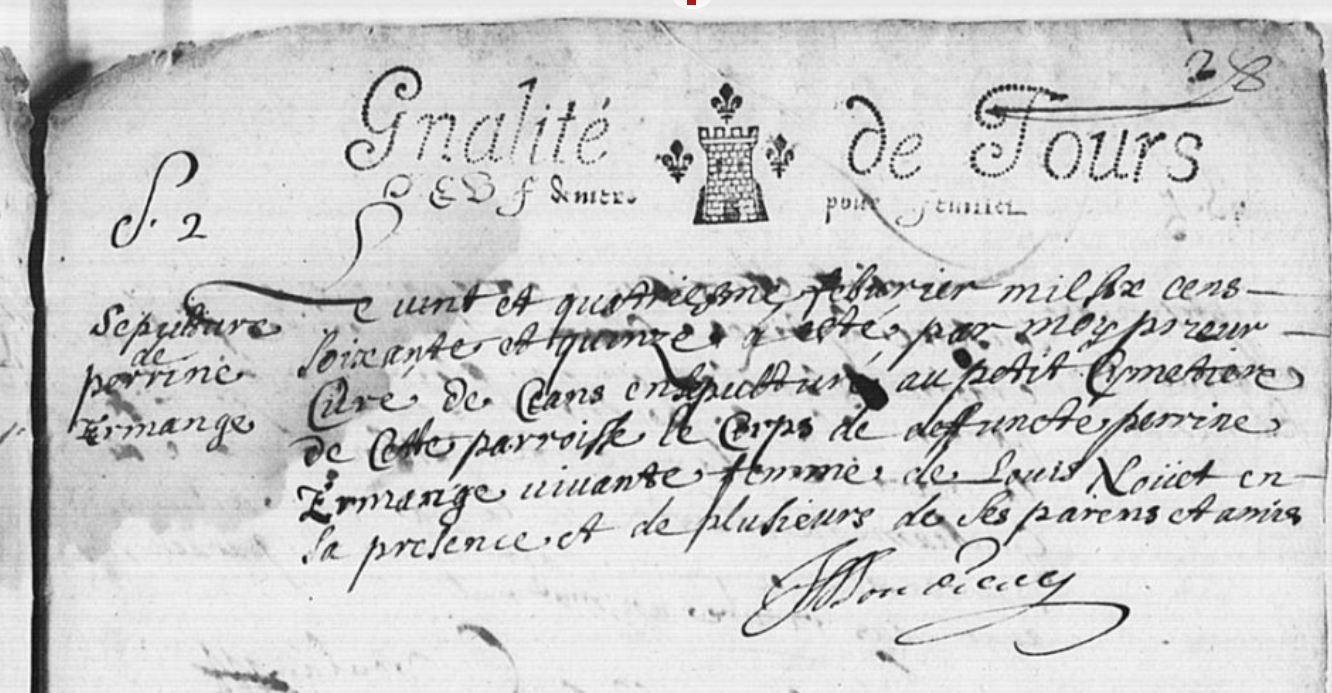 28
Gnalité de Tours
deniers pour feuillet
S. 2
Sepulture
de
perrine
Ermange
Le vint et quatriesme febvrier mil six cens
soixante et quinze a esté par moy prieur
Curé de Ceans ensepulturé au petit Cymetiere
de Cette parroisse le Corps de deffuncte perrine
Ermange vivante femme de Louis Noüet en
sa presence et de plusieurs de ses parens et amis